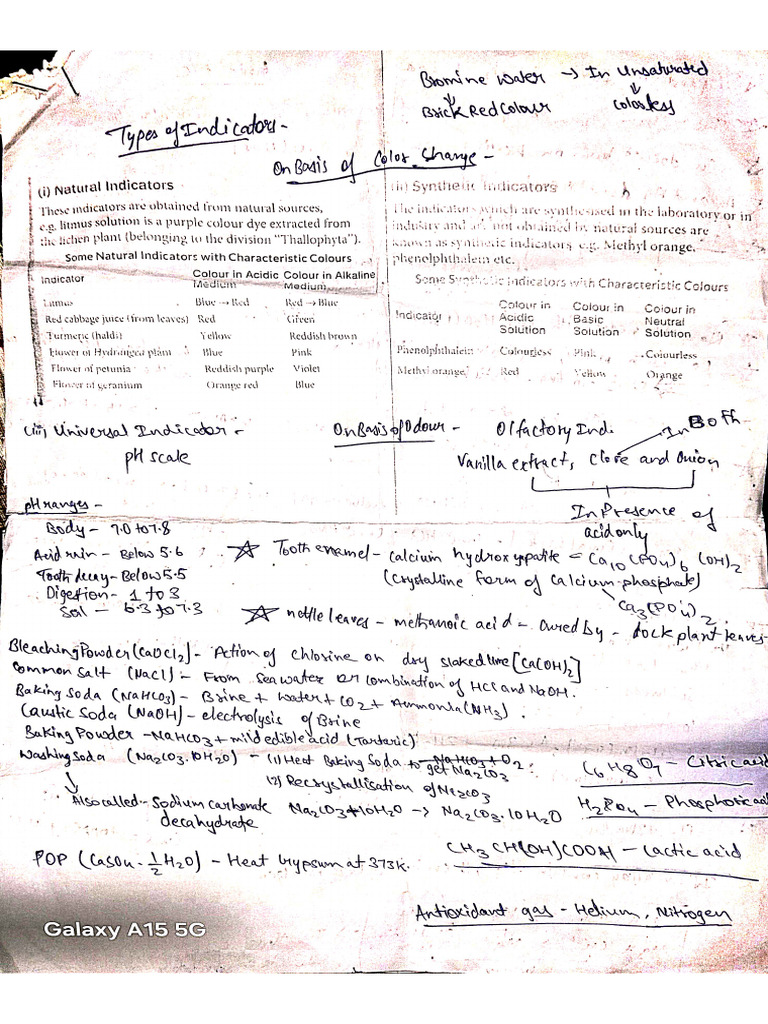 Bromine water → In Unsaturated
↓ ↓
Brick Red Colour Colorless
Types of Indicators -
On Basis of Color Change -
(i) Natural Indicators
These indicators are obtained from natural sources,
e.g. litmus solution is a purple colour dye extracted from
the lichen plant (belonging to the division "Thallophyta").
Some Natural Indicators with Characteristic Colours
Indicator Colour in Acidic Medium Colour in Alkaline Medium
Litmus Blue → Red Red → Blue
Red cabbage juice (from leaves) Red Green
Turmeric (haldi) Yellow Reddish brown
Flower of Hydrangea plant Blue Pink
Flower of petunia Reddish purple Violet
Flower of geranium Orange red Blue
(ii) Synthetic Indicators
The indicators which are synthesised in the laboratory or in
industry and are not obtained by natural sources are
known as synthetic indicators e.g. Methyl orange,
phenolphthalein etc.
Some Synthetic Indicators with Characteristic Colours
Indicator Colour in Acidic Solution Colour in Basic Solution Colour in Neutral Solution
Phenolphthalein Colourless Pink Colourless
Methyl orange Red Yellow Orange
(iii) Universal Indicator -
pH scale
On Basis of Odour - Olfactory Ind. In Both
Vanilla extract, Clove and Onion
In Presence of
acid only
pH ranges -
Body - 7.0 to 7.8
Acid rain - Below 5.6
Tooth decay - Below 5.5
Digestion - 1 to 3
Soil - 6.3 to 7.3
☆ Tooth enamel - calcium hydroxyapatite = Ca10(PO4)6(OH)2
(Crystalline form of Calcium phosphate)
Ca3(PO4)2
☆ nettle leaves - methanoic acid - Cured by - dock plant leaves
Bleaching Powder (CaOCl2) - Action of chlorine on dry slaked lime [Ca(OH)2]
Common Salt (NaCl) - From sea water or combination of HCl and NaOH.
Baking Soda (NaHCO3) - Brine + water + CO2 + Ammonia (NH3).
Caustic Soda (NaOH) - electrolysis of Brine
Baking Powder - NaHCO3 + mild edible acid (Tartaric)
Washing Soda (Na2CO3.10H2O) - (1) Heat Baking Soda to NaHCO3 + O2
get Na2CO3
(2) Recrystallisation of Na2CO3
↓ Also called - Sodium carbonate Na2CO3 + 10H2O → Na2CO3.10H2O
decahydrate
POP (CaSO4.1/2H2O) - Heat Gypsum at 373K.
C6H8O7 - Citric acid
H2PO4 - Phosphoric acid
CH3CH(OH)COOH - Lactic acid
Antioxidant gas - Helium, Nitrogen
Galaxy A15 5G